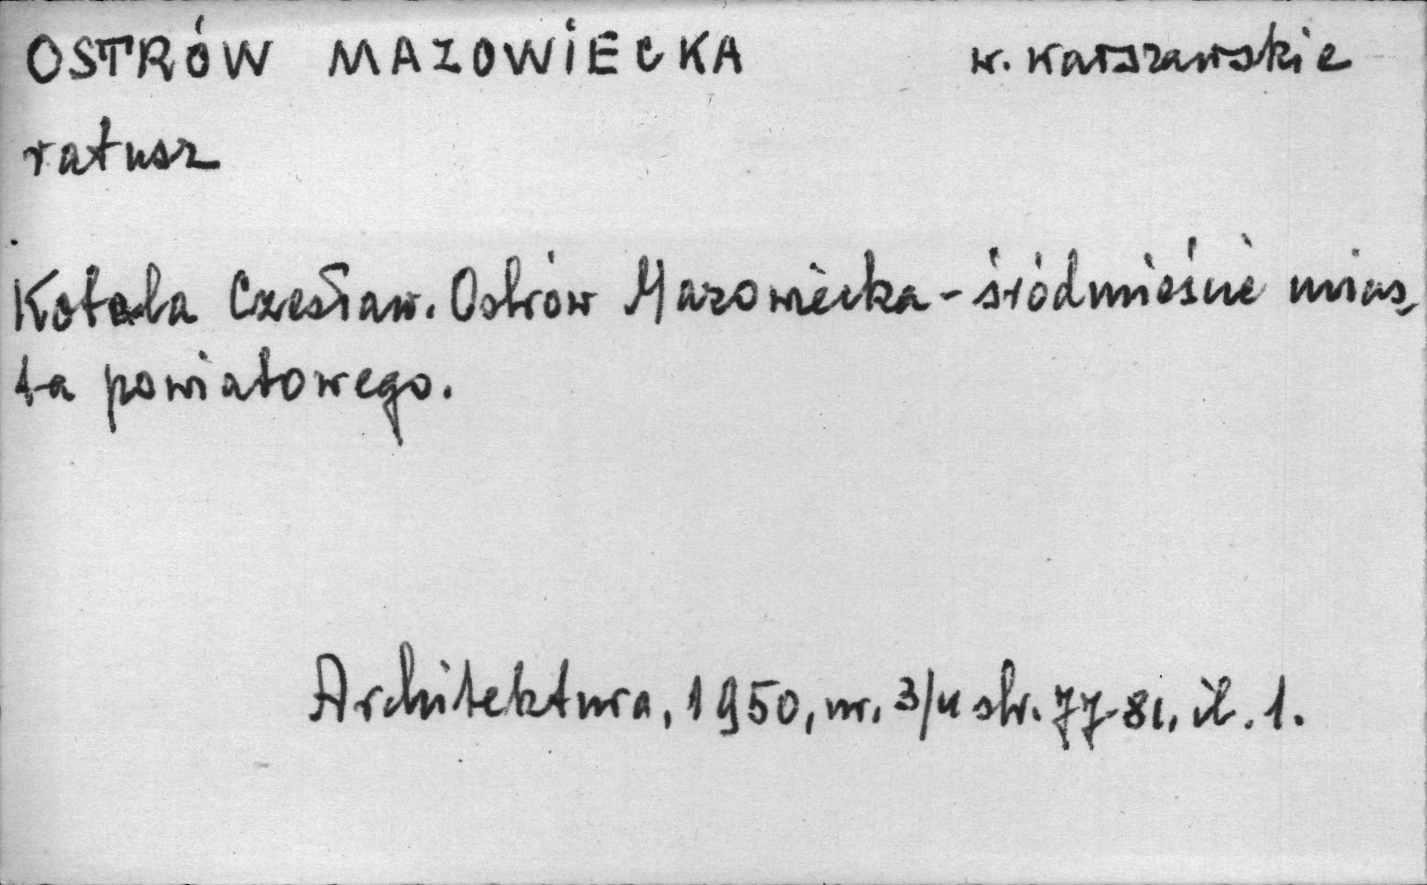 OSTRÓW MAZOWIECKA w. warszawskie
ratusz
Kotela Czesław. Ostrów Mazowiecka - śródmieście mias-
ta powiatowego.
Architektura, 1950, nr. 3/4 str. 77-81, il. 1.